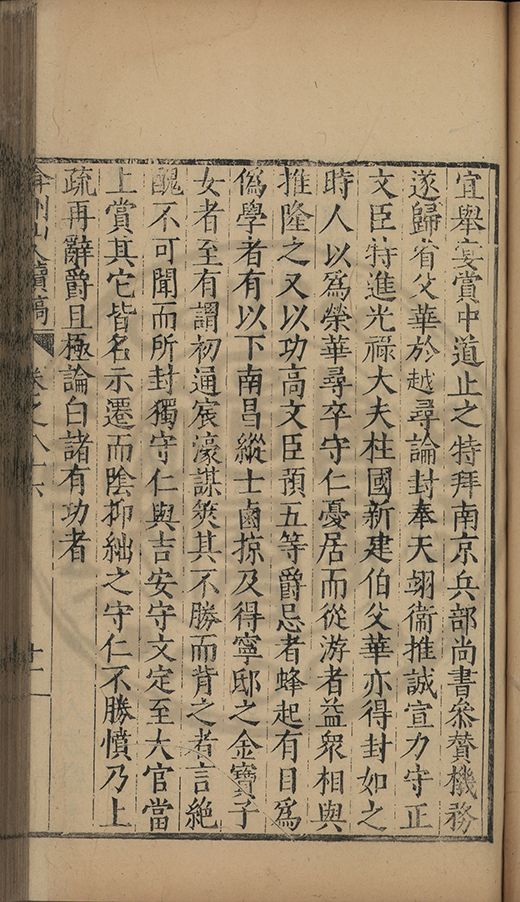 宜舉宴賞中道止之特拜南京兵部尚書叅賛機務
遂歸省父華於越尋論封奉天翊衞推誠宣力守正
文臣特進光祿大夫柱國新建伯父華亦得封如之
時人以爲榮華尋卒守仁憂居而從游者益衆相與
推隆之又以功高文臣預五等爵忌者蜂起有目爲
僞學者有以下南昌縱士鹵掠及得寧邸之金寶子
女者至有謂初通宸濠謀筴其不勝而背之者言絶
醜不可聞而所封獨守仁與吉安守文定至大官當
上賞其它皆名示遷而陰抑絀之守仁不勝憤乃上
疏再辭爵且極論白諸有功者
弇州山人續稿
卷之八十六
十一